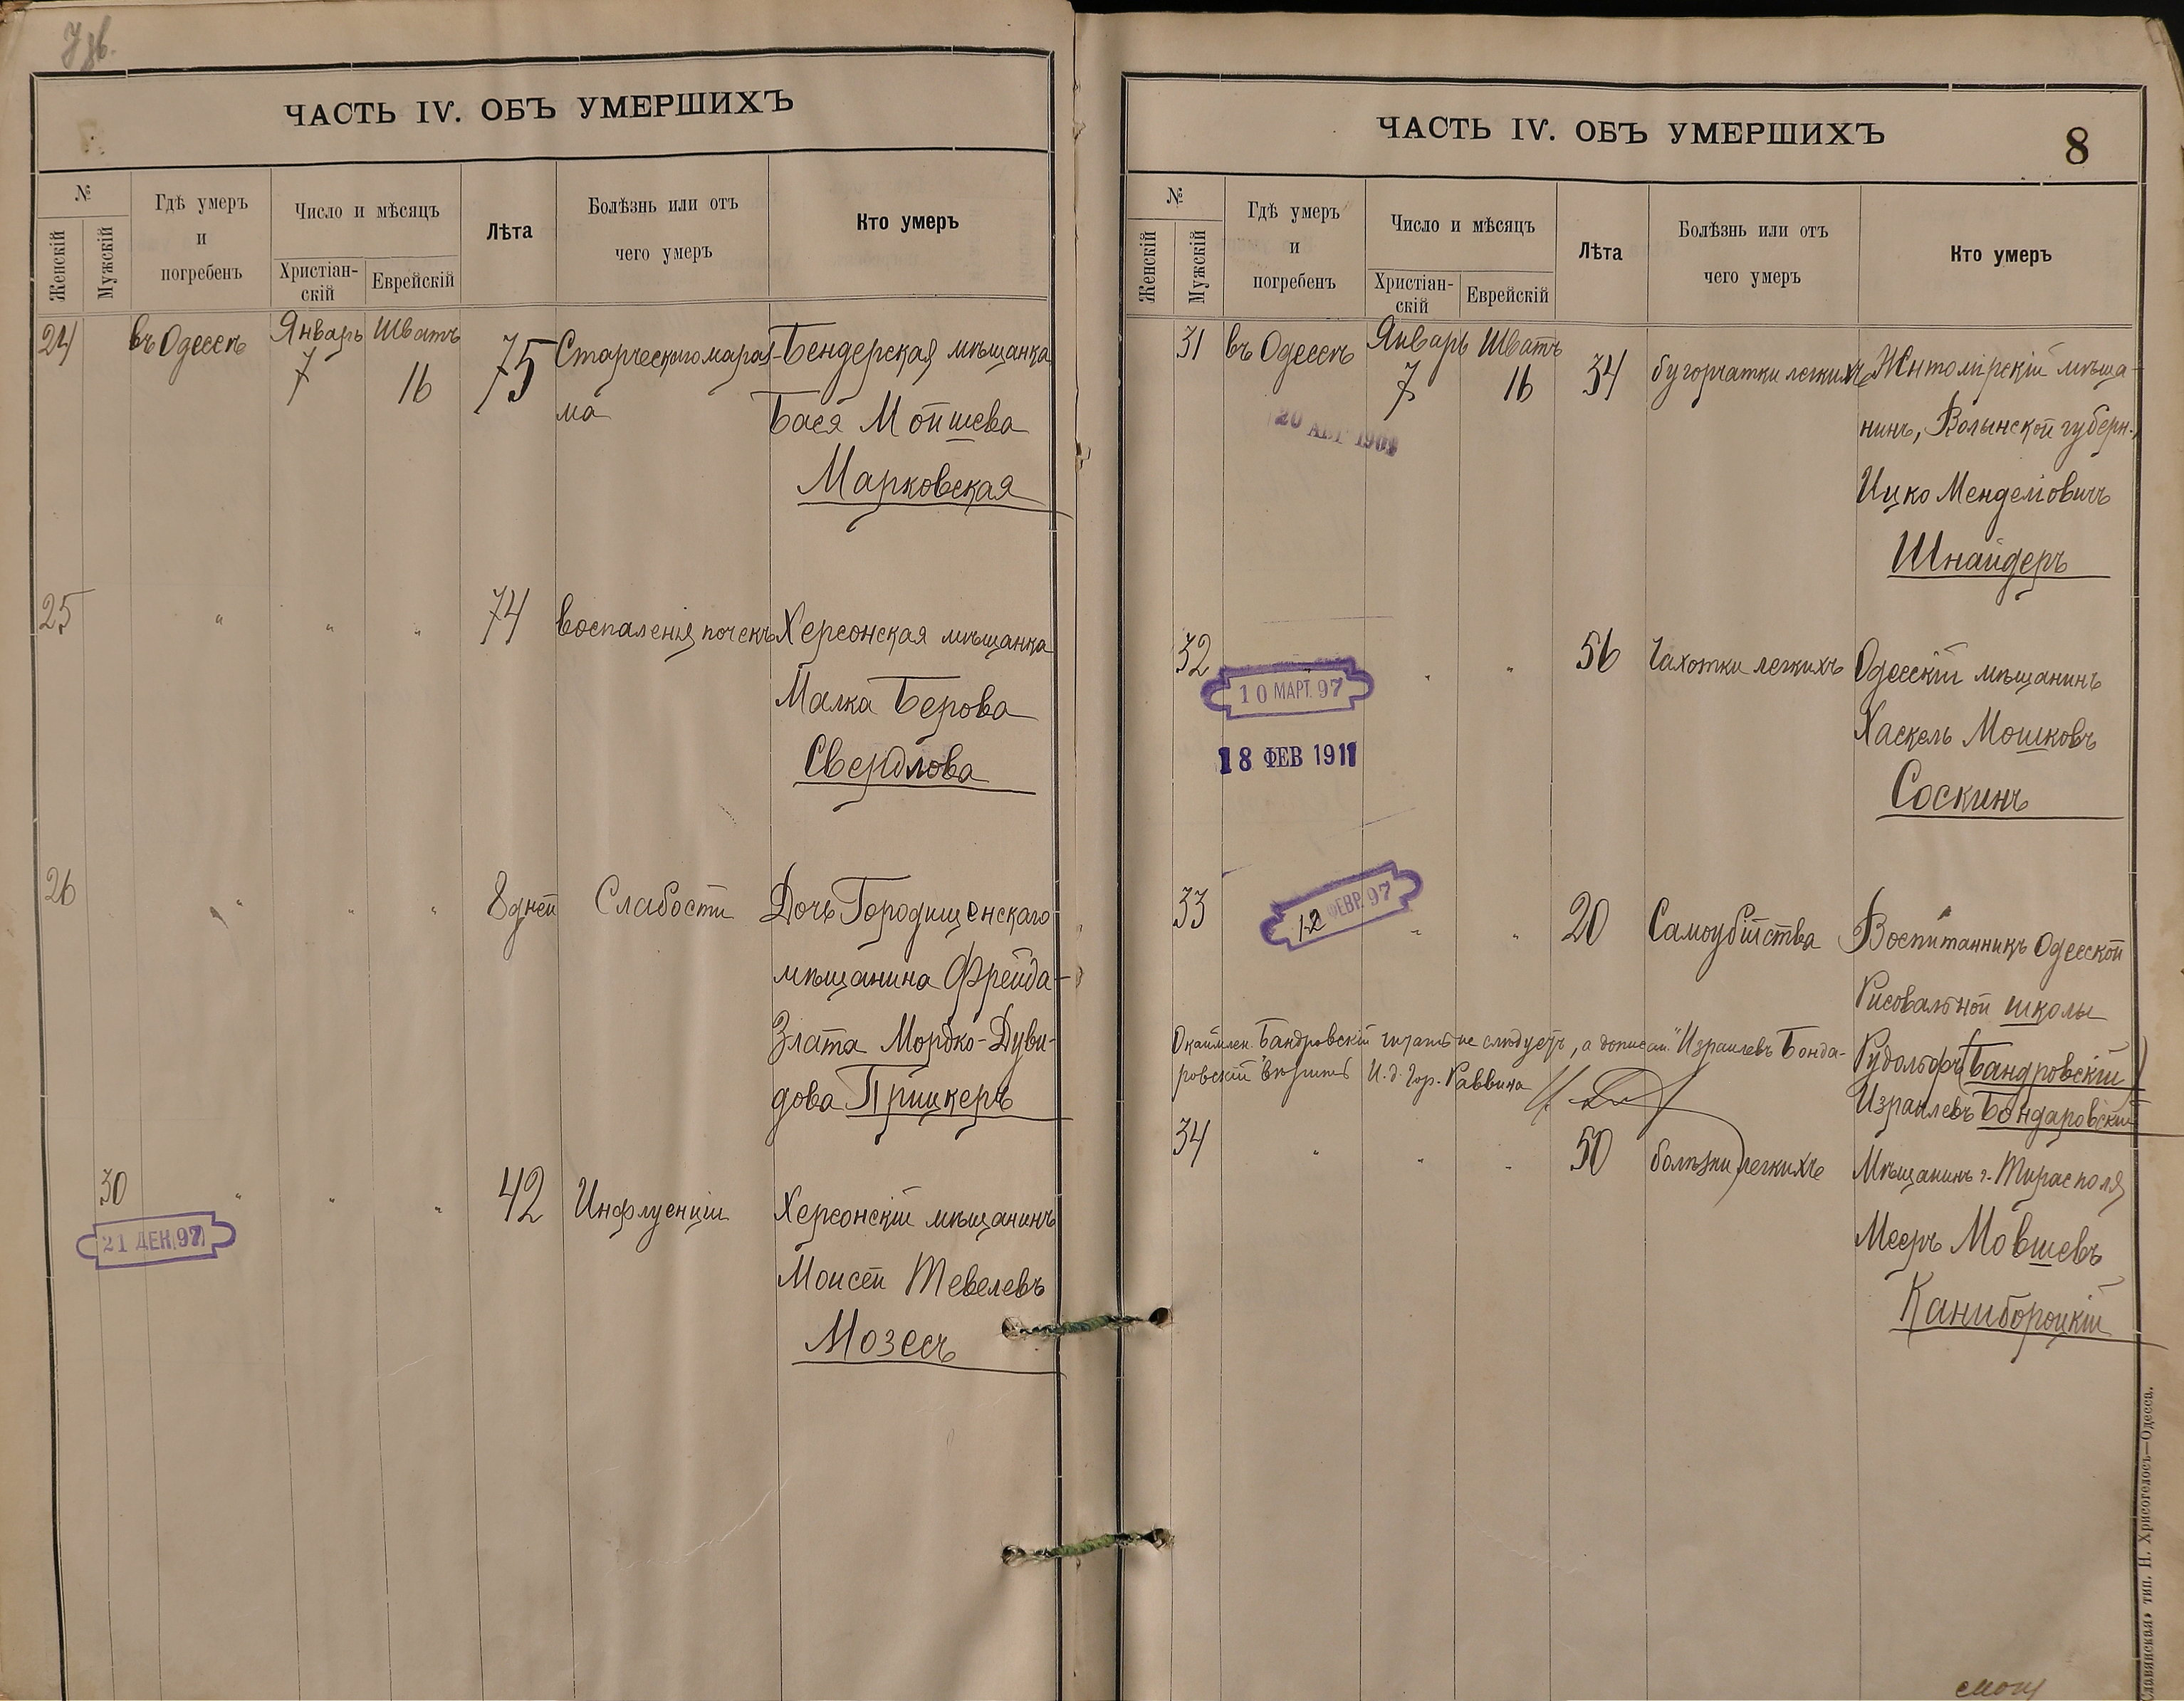 ЧАСТЬ IV. ОБЪ УМЕРШИХЪ
№
Женскій
Мужскій
Гдѣ умеръ
и
погребенъ
Число и мѣсяцъ
Христіан-
скій
Еврейскій
Лѣта
Болѣзнь или отъ
чего умеръ
Кто умеръ
24 въ Одессѣ Январь Шватъ 75 Старческаго мараз- Бендерская мѣщанка
7 16 ма Бася Мойшева
Марковская
25 " " " 74 воспаленія почекъ Херсонская мѣщанка
Малка Берова
Свердлова
26 " " " 8 дней Слабости Дочь Городищенскаго
мѣщанина Фрейда-
Злата Мордко-Дуви-
дова Прицкеръ
30 " " " 42 Инфлуенціи Херсонскій мѣщанинъ
21 ДЕК 97
Моисей Тевелевъ
Мозесъ
ЧАСТЬ IV. ОБЪ УМЕРШИХЪ
8
№
Женскій
Мужскій
Гдѣ умеръ
и
погребенъ
Число и мѣсяцъ
Христіан-
скій
Еврейскій
Лѣта
Болѣзнь или отъ
чего умеръ
Кто умеръ
31 въ Одессѣ Январь Шватъ 34 бугорчатки легкихъ Житомірскій мѣща-
7 16 нинъ, Волынской губерн.,
20 АВГ 1901
Ицко Менделіовичъ
Шнайдеръ
32 " " " 56 Чахотки легкихъ Одесскій мѣщанинъ
10 МАРТ. 97
Хаскель Мошковъ
18 ФЕВ 1911
Соскинъ
33 12 ФЕВР. 97 " " 20 Самоубійства Воспитанникъ Одесской
Рисовальной школы
Окаймлен. Бандровскій читать не слѣдуетъ, а дописан. "Израилевъ Бонда-
Рудольфъ (Бандровскій)
ровскій" вѣрить И. д. Гор. Раввина
Израилевъ Бондаровскій
34 " " " 50 болѣзни легкихъ Мѣщанинъ г. Тирасполя
Мееръ Мовшевъ
Канибороцкій
Славянская» тип. Н. Хрисогелосъ—Одесса.